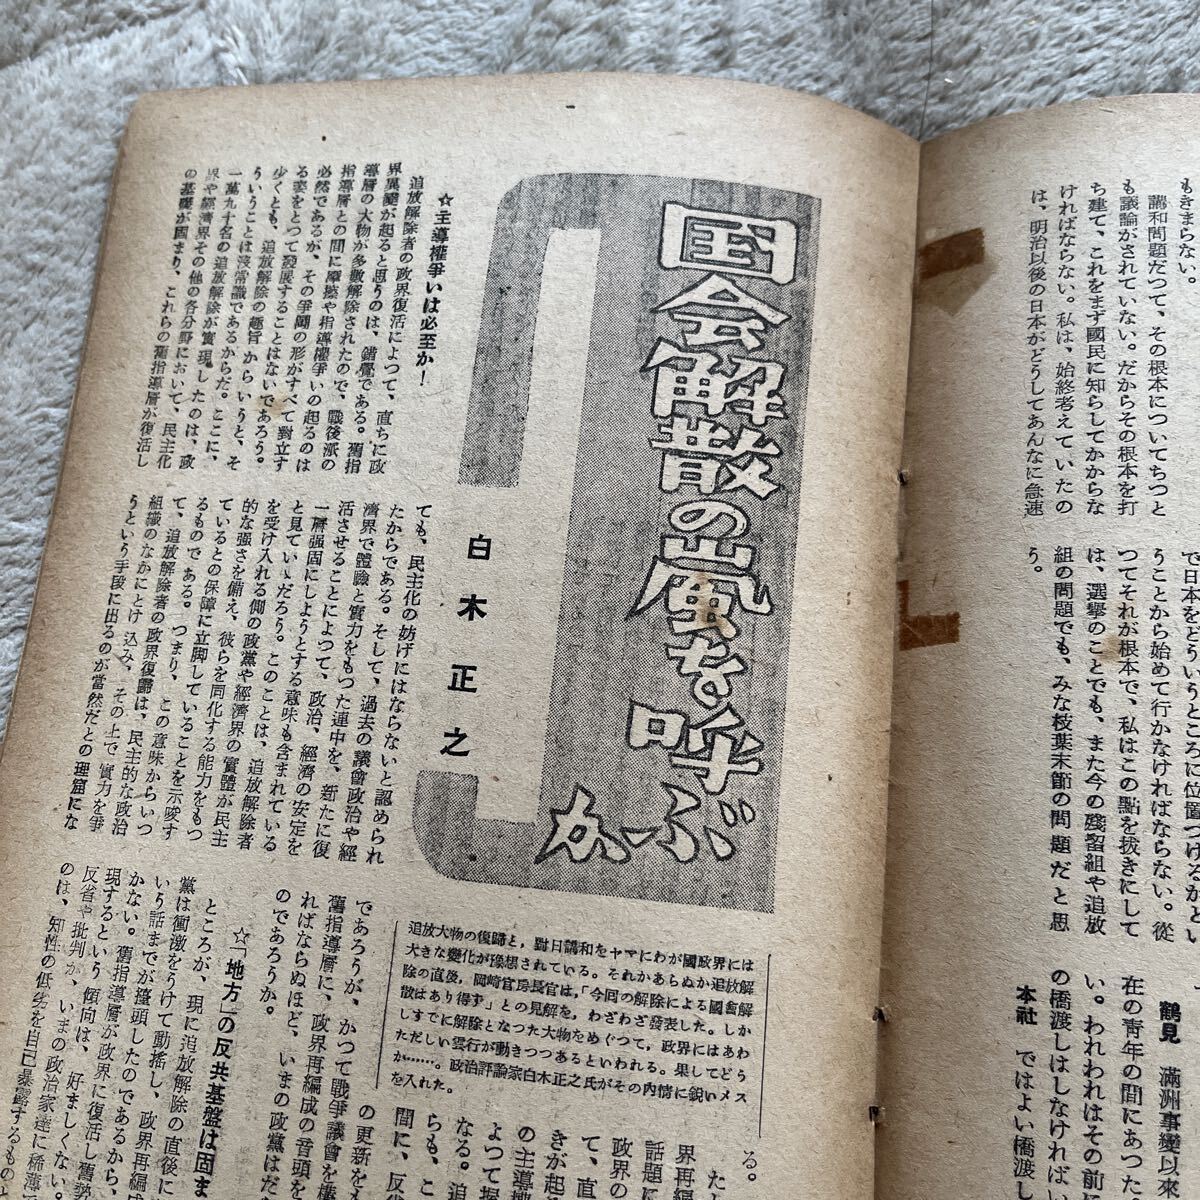 もきまらない。
講和問題だつて、その根本についてちつと
も議論がされていない。だからその根本を打
ち建て、これをまず國民に知らしてかからな
ければならない。私は、始終考えていたの
は、明治以後の日本がどうしてあんなに急速
で日本をどういうところに位置づけるかとい
うことから始めて行かなければならない。從
つてそれが根本で、私はこの點を拔きにして
は、選擧のことでも、また今の殘留組や追放
組の問題でも、みな枝葉末節の問題だと思
う。
鶴見 滿洲事變以來
在の青年の間にあつた
い。われわれはその前
の橋渡しはしなければい
本社 ではよい橋渡し
国会解散の嵐を呼ぶ
か
白木正之
追放大物の復歸と，對日講和をヤマにわが國政界には
大きな變化が豫想されている。それかあらぬか追放解
除の直後，岡崎官房長官は，「今回の解除による國會解
散はあり得ず」との見解を，わざわざ發表した。しか
しすでに解除となつた大物をめぐつて，政界にはあわ
ただしい雲行が動きつつあるといわれる。果してどう
か……。政治評論家白木正之氏がその内情に鋭いメス
を入れた。
☆主導權爭いは必至か！
追放解除者の政界復活によつて、直ちに政
界異變が起ると思うのは、錯覺である。舊指
導層の大物が多數解除されたので、戰後派の
指導層との間に摩擦や指導權爭いの起るのは
必然であるが、その爭鬪の形がすべて對立す
る姿をとつて發展することはないであろう。
少くとも、追放解除の趣旨からいうと、そ
ういうことは非常識であるからだ。ここに、
一萬九十名の追放解除が實現したのは、政
界や經濟界その他の各分野において、民主化
の基礎が固まり、これらの舊指導層が復活し
ても、民主化の妨げにはならないと認められ
たからである。そして、過去の議會政治や經
濟界で體驗と實力をもつた連中を、新たに復
活させることによつて、政治、經濟の安定を
一層强固にしようとする意味も含まれている
と見ていいだろう。このことは、追放解除者
を受け入れる側の政黨や經濟界の實體が民主
的な强さを備え、彼らを同化する能力をもつ
ているとの保障に立脚していることを示唆す
るものである。つまり、この意味からいつ
て、追放解除者の政界復歸は、民主的な政治
組織のなかにとけ込み、その上で實力を爭
うという手段に出るのが當然だとの理窟にな
る。
であろうが、かつて戰爭議會を
舊指導層に、政界再編成の音頭を
ればならぬほど、いまの政黨はだ
のであろうか。
☆「地方」の反共基盤は固ま
ところが、現に追放解除の直後に
黨は衝激をうけて動搖し、政界再編成
いう話までが擡頭したのであるから、
かない。舊指導層が政界に復活し舊勢
現するという傾向は、好ましくない。
反省や批判が、いまの政治家達に稀薄
のは、知性の低劣を自己暴露するものと